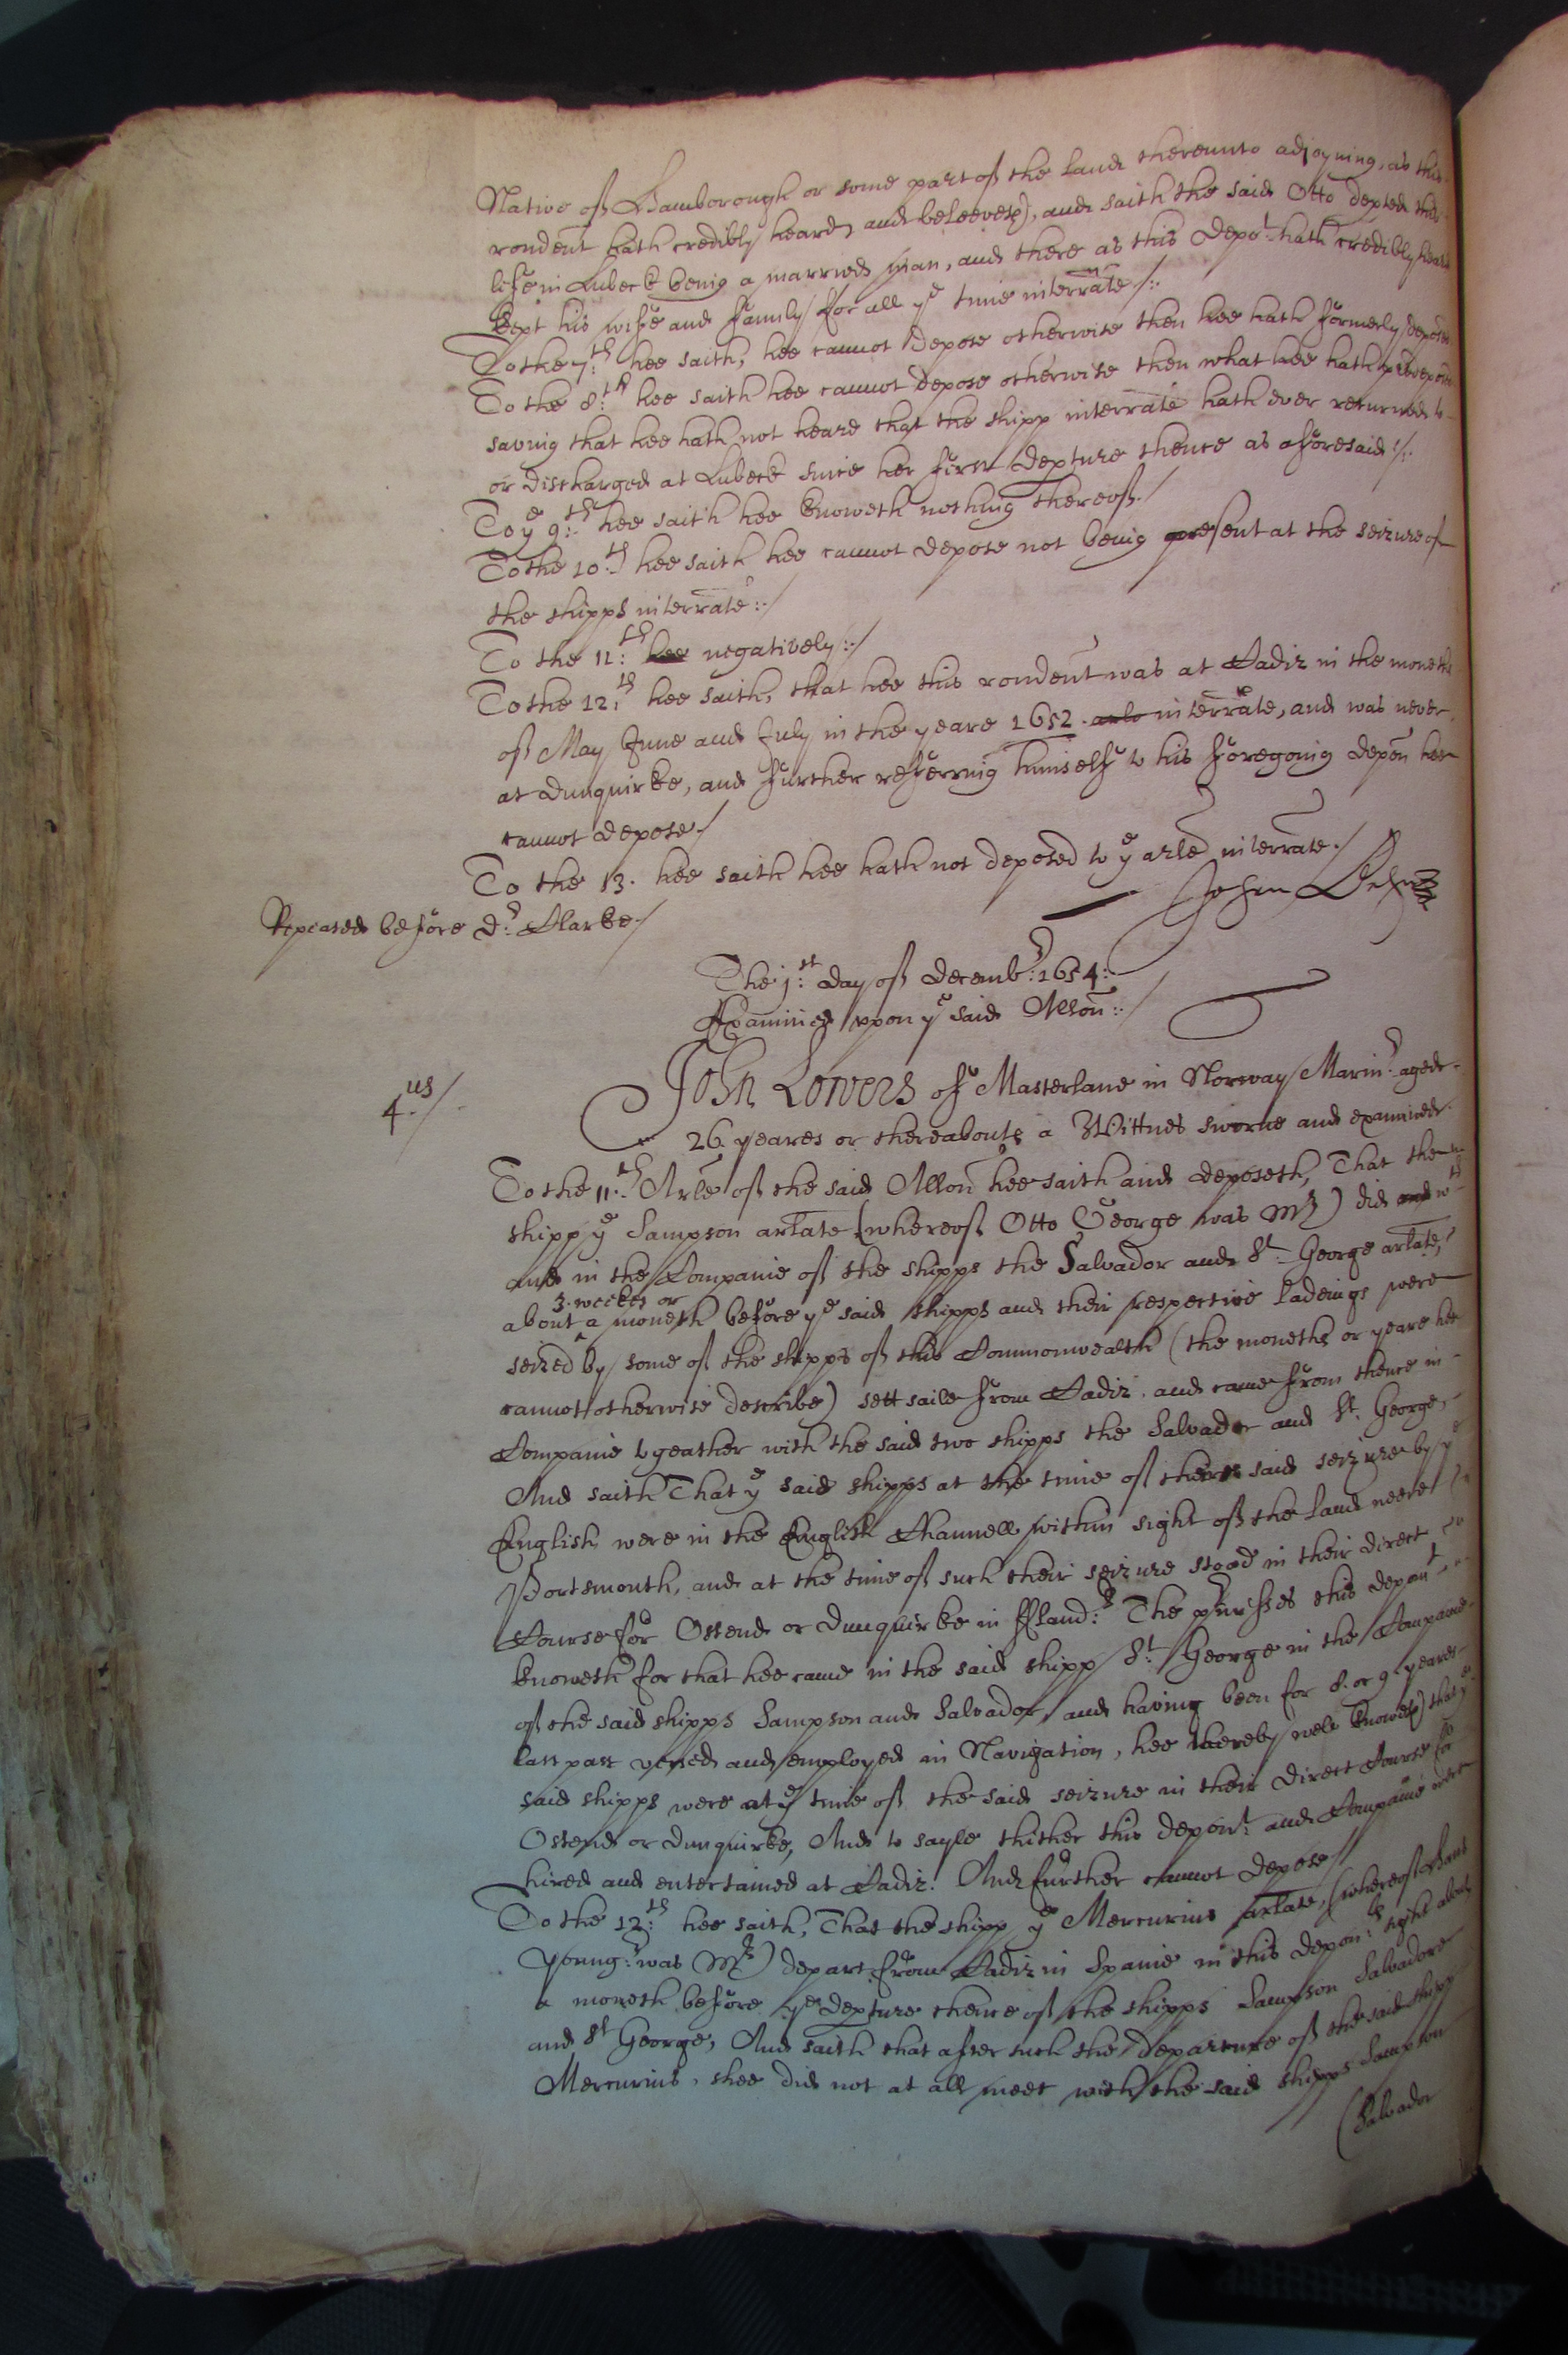 Native of Hamborough or some part of the land thereunto adjoyning, as this
rondent hath credibly heard and beleeveth), and saith the said Otto depted this
life in Lubeck being a married man, and there as this depot hath credibly heard
kept his wife and family for all ye time interrate /:
To the 7:th hee saith, hee cannot depose otherwise then hee hath formerly deposed
To the 8:th hee saith hee cannot depose otherwise then what hee hath predeposed
saving that hee hath not heard that the shipp interrate hath ever returned to
or discharged at Lubeck since her first depture thence as aforesaid /:
To ye 9:th hee saith hee knoweth nothing thereof./
To the 10:th hee saith hee cannot depose not being present at the seizure of
the shipps interrate:/
To the 11:th hee negatively:/
To the 12:th hee saith, that hee this rondent was at Cadiz in the moneths
of May June and July in the yeare 1652. arlo interrate, and was never
at Dunquirke, and further referring himself to his foregoing depon hee
cannot depose./
To the 13. hee saith hee hath not deposed to ye arled interrate./
Repeated before Dr. Clarke./
John
The 1:st day of Decembr: 1654:
Examined upon ye said Allon:/
4.us/
John Lowers of Masterlane in Norway Marinr. aged
26. yeares or thereabouts a Wittnes sworne and examined.
To the 11:th Arle of the said Allon hee saith and deposeth, That the
shipp ye Sampson arlate (whereof Otto George was Mr) did and wth
and in the Companie of the shipps the Salvador and St. George arlate,
3. weekes or
about a moneth before ye said shipps and their respective ladeings were
seized by some of the shipps of this Commonwealth (the moneths or yeare hee
cannot otherwise describe) sett saile from Cadiz, and came from thence in
Companie togeather with the said two shipps the Salvador and St. George,
And saith That ye said shipps at the time of their said seizure by ye
English were in the English Channell within sight of the land neere
Portsmouth, and at the time of such their seizure stood in their direct
Course for Ostend or Dunquirke in Flandrs: The prmisses this depont
knoweth for that hee came in the said shipp St. George in the Companie
of the said shipps Sampson and Salvador, and having been for 8. or 9 yeares
last past versed and employed in Navigation, hee thereby well knoweth that ye
said shipps were at ye time of the said seizure in their direct Course for
Ostend or Dunquirke, And to sayle thither this depont and Companie were
hired and entertained at Cadiz. And further cannot depose/
To the 12:th hee saith, That the shipp ye Mercurius arlate, (whereof Hans
Young: was Mr) depart from Cadiz in Spaine in this deponts sight about
a moneth before ye depture thence of the shipps Sampson Salvadore
and St George, And saith that after such the departure of the said shipp
Mercurius, shee did not at all meet with the said shipps Sampson
(Salvador